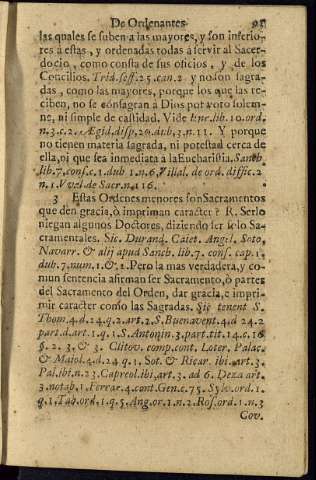 De Ordenantes.
las quales se suben a las mayores, y son inferio-
res à estas, y ordenadas todas á servir al Sacer-
docio, como consta de sus oficios, y de los
Concilios. Trid. sess. 25. can. 2. y no son sagra-
das, como las mayores, porque los que las re-
ciben, no se consagran à Dios por voto solem-
ne, ni simple de castidad. Vide Enr. lib. 10. ord.
n. 3. c. 2. Ægid. disp. 20. dub. 3. n. 11. Y porque
no tienen materia sagrada, ni potestad cerca de
ella, ni que sea inmediata à la Eucharistia. Sanch.
lib. 7. conf. c. 1. dub 1. n. 6. Villal. de ord. diffic. 2
n. 1. de Sacr. n. 116.
3 Estas Ordenes menores son Sacramentos
que den gracia, ò impriman caracter? R. Serlo
niegan algunos Doctores, diziendo ser solo Sa-
cramentales. Sic. Durand. Caiet. Angel. Soto,
Navarr. & alij apud Sanch. lib. 7. cons. cap. 1.
dub. 7. num. 1. & 2. Pero la mas verdadera, y co-
mun sentencia afirman ser Sacramento, ò partes
del Sacramento del Orden, dar gracia, è impri-
mir caracter como las Sagradas. Sic tenent S.
Thom. 4. d. 24. q. 2. art. 2. S. Buenavent. 4. d 24. 2
part. d. art. 1. q. 1. S. Antonin. 3. part. tit. 14. c. 16
§. 2. 3. & 3. Clitov. comp. cont. Loter. Palac.
& Maiol. 4. d. 24. q. 1. Sot. & Ricar. ibi. art. 3.
Pal. ibi. n. 23. Capreol. ibi. art. 3. ad 6. Deza art.
3. notab. 1. Ferrac. 4. cont. Gen. c. 75. Sylv. ord. 1.
q. 1. Tab. ord. 1. q. 5. Ang. or. 1. n. 2. Ros. ord. 1. n. 3
Cov.